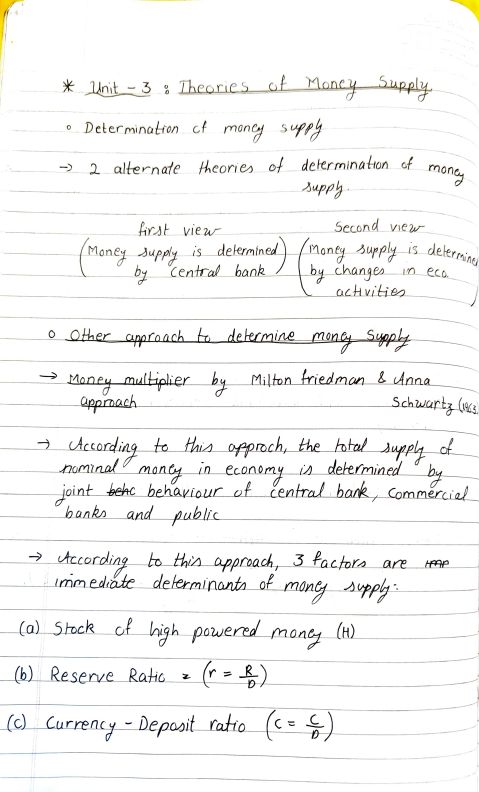 * Unit - 3 : Theories of Money Supply
o Determination of money supply
→ 2 alternate theories of determination of money
supply.
first view
(Money supply is determined
by central bank)
Second view
(Money supply is determined
by changes in eco.
activities
o Other approach to determine money Supply
→ Money multiplier by Milton friedman & Anna
approach Schwartz (1963
→ According to this approch, the total supply of
nominal money in economy is determined by
joint behc behaviour of central bank, commercial
banks and public
→ According to this approach, 3 factors are imp
immediate determinants of money supply:
(a) Stock of high powered money (H)
(b) Reserve Ratio = (r = R/D)
(c) Currency - Deposit ratio (c = C/D)